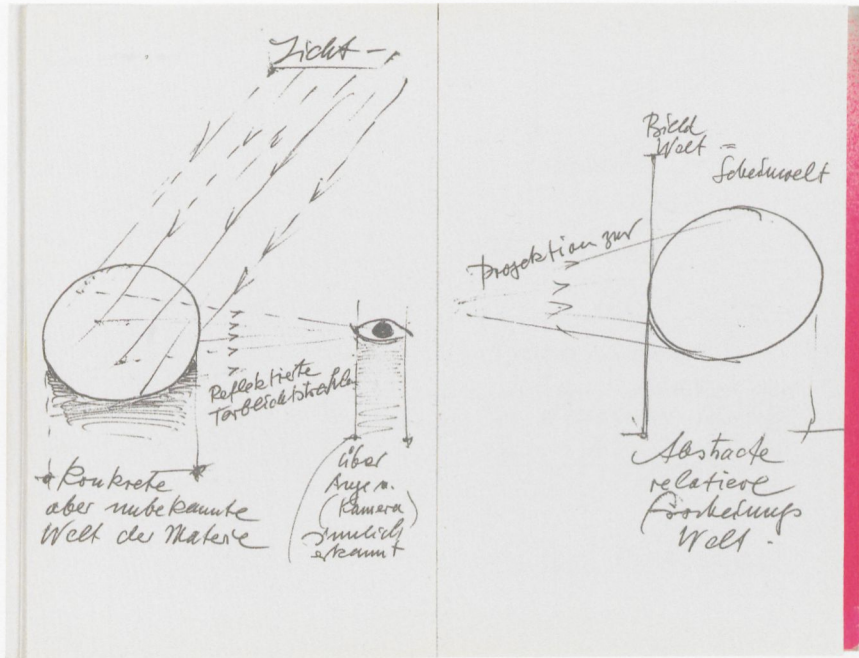 Licht -
Reflektierte
Farblichtstrahlen
Konkrete
aber unbekannte
Welt der Materie
über
Auge u.
(Kamera)
sinnlich
erkannt
Bield
Welt =
Scheinwelt
Projektion zur
Abstracte
relative
Erscheinungs
Welt.